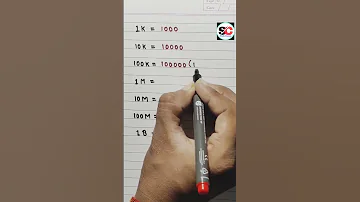 SC
1K = 1000
10K = 10000
100K = 100000 (1
1M =
10M =
100M =
1B